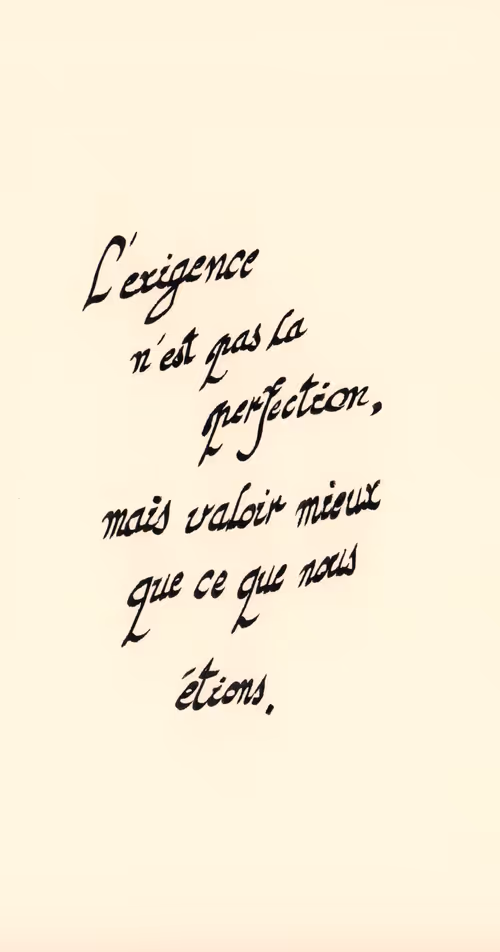 L'exigence
n'est pas la
perfection,
mais valoir mieux
que ce que nous
étions.